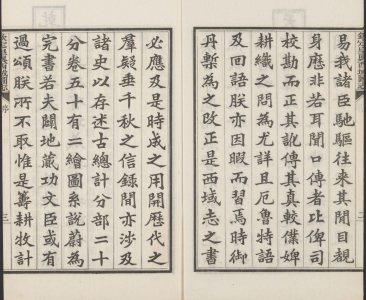 易我諸臣馳驅往來其閒目覩
身應非若耳聞口傳者比俾司
校勘而正其訛傳其真較僕婢
耕織之問為尤詳且厄魯特語
及回語朕亦因暇而習焉時御
丹槧為之改正是西域志之書
必應及是時成之用開歷代之
羣疑垂千秋之信錄閒亦涉及
諸史以存述古總計分部二十
分卷五十有二繪圖系說蔚為
完書若夫開地蕆功文臣或有
過頌朕所不取惟是籌耕牧計
序
三